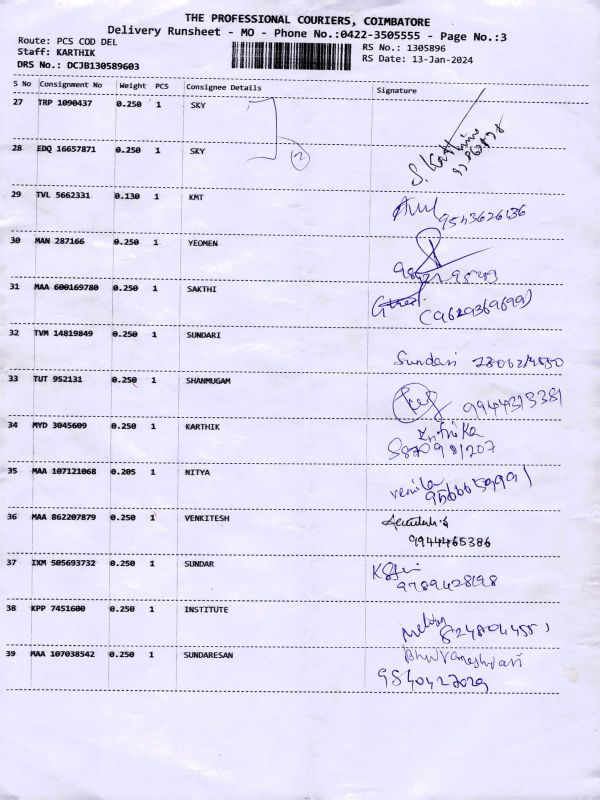 THE PROFESSIONAL COURIERS, COIMBATORE
Delivery Runsheet - MO - Phone No.:0422-3505555 - Page No.:3
Route: PCS COD DEL
RS No.: 1305896
Staff: KARTHIK
RS Date: 13-Jan-2024
DRS No.: DCJB130589603
S No Consignment No Weight PCS Consignee Details Signature
27 TRP 1090437 0.250 1 SKY
28 EDQ 16657871 0.250 1 SKY
2
29 TVL 5662331 0.130 1 KMT
30 MAN 287166 0.250 1 YEOMEN
31 MAA 600169780 0.250 1 SAKTHI
32 TVM 14819849 0.250 1 SUNDARI
Sundari
33 TUT 952131 0.250 1 SHANMUGAM
34 MYD 3045609 0.250 1 KARTHIK
35 MAA 107121068 0.205 1 NITYA
36 MAA 862207879 0.250 1 VENKITESH
9944465386
37 IXM 505693732 0.250 1 SUNDAR
9789428198
38 KPP 7451600 0.250 1 INSTITUTE
39 MAA 107038542 0.250 1 SUNDARESAN
9840427029